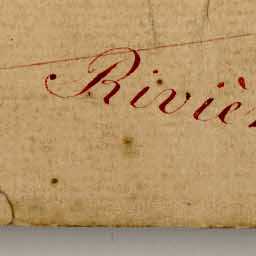 Rivièr